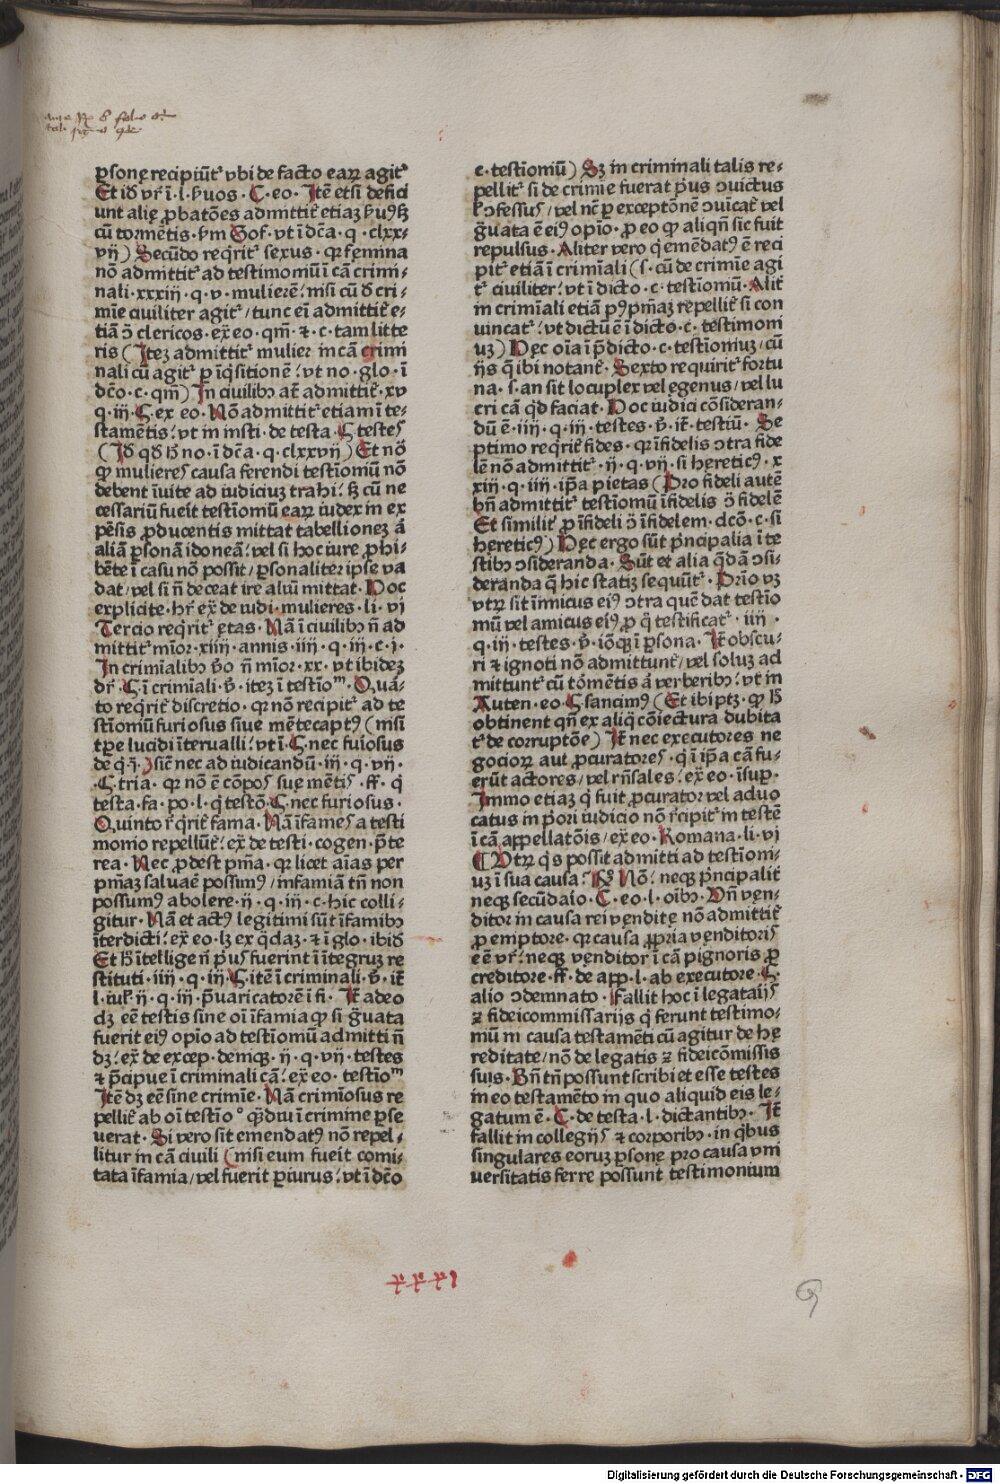 ꝑsonę recipiūt᷑ vbi de facto earꝝ agit᷑
Et iđ vr̄ ī·l·ẜuos·C·eo·Itē etsi defici
unt alię ꝓbatões admittit᷑ etiaꝫ ẜuꝰ ſꝫ
cū tormētis·ẜm Gof·vt ī dc̄a·q·clxx⸗
vij) Secūdo req̇rit᷑ sexus·qꝛ fęmina
nō admittit᷑ ad testimoniū ī cā crimi⸗
nali·xxxiij·q·v·mulierē·nisi cū đ cri⸗
mīe ciuiliter agit᷑/tunc eī admittit᷑ e⸗
tiā ɔ̄ clericos·ex̄ eo·qm̄·⁊·c·tam litte
ris (Iteꝫ admittit᷑ mulier in cā crimi
nali cū agit᷑ ꝑ īq̇sitionē/vt no·glo·ī
dc̄o·c·qm̄) In ciuilibꝫ at̄ admittit᷑·xv
q·iij·§·ex eo·Nō admittit᷑ etiam ī te⸗
stamētis·vt in insti·de testa·§ testeſ
(Iđ qđ ħ no·ī dc̄a·q·clxxvij) Et nō
ꝙ muliereſ causa ferendi testioniū nō
debent īuite ad iudiciuꝫ trahi·ſꝫ cū ne
cessariū fueit testioniū earꝝ iudex in ex
pēsis ꝓducentis mittat tabellioneꝫ ā
aliā ꝑsonā idoneā·vel si hoc iure ꝓhi⸗
bēte ī casu nō possit/ꝑsonaliter ipse va
dat/vel si n̄ deceat ire aliū mittat·Hoc
explicite·hr̄ ex̄ de iudi·mulieres·li·vj
Tercio req̇rit᷑ ętas·Nā ī ciuilibꝫ n̄ ad
mittit᷑ mīor·xiiij·annis·iiij·q·iij·c·j·
In crimīalibꝫ v̄o n̄ mīor·xx·vt ibideꝫ
dr̄·§ ī crimīali·v̄·iteꝫ ī testīoᵐ·Quā⸗
to reqrit᷑ discretio·qꝛ nō recipit᷑ ad te
stīomiū furiosus siue mētecaptꝰ (nisi
tꝑe lucidi īterualli/vt ī·§·nec furiosus
de q̄·j·)siē nec ad iudicandū·iij·q·vij·
·§·tria·qꝛ nō ē cōpoſ suę mētiſ·ff·q̇
testa·fa·po·l·q̇ testō·§·nec furiosus·
Quinto reqrit᷑ fama·Nā īfameſ a testi
monio repellūt᷑·ex̄ de testi·cogen·p̄te
rea·Nec ꝓdest pn̄ia·qꝛ licet aīas per
pn̄iaꝫ saluaē possimꝰ/infamiā tn̄ non
possumꝰ abolere·ij·q·iij·c·hic colli⸗
gitur·Nā et actꝰ legitimi sūt īfamibꝫ
īterdicti·ex̄ eo·lꝫ ex q̇daꝫ·⁊ ī glo·ibiđ
Et ħ ītellige n̄ pꝰuſ fuerint ī ītegruꝫ re
stituti·iiij·q·iij·§·itē ī criminali·v̄·it̄
l·iuł·ij·q·iij·p̄uaricatorē ī fi·It̄ adeo
dꝫ eē testis sine oī īfamia ꝙ si ḡuata
fuerit eiꝰ opīo ad testīomū admitti n̄
dꝫ·ex̄ de excep·deniqꝫ·ij·q·vij·testes
⁊ p̄cipue ī criminali cā·ex̄ eo·testīoᵐ
Itē dꝫ eē sine crimīe·Nā crimīosus re
pellit᷑ ab oī testīo°·q̄ꝫdiu ī crimine ꝑse
uerat·Si vero sit emendatꝰ nō repel⸗
litur in cā ciuili (nisi eum fueit comi⸗
tata īfamia/vel fuerit ꝑiurus·vt ī dc̄o
c·testīomū) Sꝫ in criminali talis re⸗
pellit᷑ si de crimīe fuerat pꝰus ɔuictus
ł ɔfessuſ/vel nc̄ ꝑ exceptōnē ɔuīcat᷑ vel
ḡuata ē eiꝰ opīo·ꝓ eo ꝙ aliqn̄ sic fuit
repulsus·Aliter vero q̇ emēdatꝰ ē reci
pit᷑ etiā ī crimīali (s·cū de crimīe agi
t᷑ ciuiliter·vt ī dicto·c·testīomū·Alit᷑
in crimīali etiā pꝰ pn̄iaꝫ repellit᷑ si con
uincat᷑·vt dictū ē ī dicto·c·testimoni
uꝫ) Hec oīa ī p̄dicto·c·testīoniuꝫ/cū
ijs q̄ ibi notant᷑·Sexto requirit᷑ fortu
na·s·an sit locuplex vel egenus/vel lu
cri cā qđ faciat·Hoc iudici cōsideran⸗
dū ē·iiij·q·iij·testes·v̄·it̄·testiū·Se
ptimo req̇rit᷑ fides·qꝛ īfidelis ɔtra fide
lē nō admittit᷑·ij·q·vij·si hereticꝰ·x
xiij·q·iiij·ip̄a pietas (Pro fideli autē
bn̄ admittit᷑ testīomū īfidelis ɔ̄ fidelē
Et similit᷑ ꝑ īfideli ɔ̄ īfidelem·dc̄ō·c·si
hęreticꝰ) Hęc ergo sūt pꝰncipalia ī te
stibꝫ ɔsideranda·Sūt et alia q̄dā ɔsi⸗
deranda q̄ hic statiꝫ sequūt᷑·Prīo vꝫ
vtꝝ sit īimicus eiꝰ ɔtra quē dat testīo
mū vel amicus eiꝰ ꝓ q̇ testificat᷑·iiij·
q·iij·testes·v̄·iōqꝫ ī ꝑsona·It̄ obscu⸗
ri ⁊ ignoti nō admittunt᷑/vel soluꝫ ad
mittunt᷑ cū tōmētis ā verberibꝫ·vt in
Auten·eo·§ sancimꝰ (Et ibi ptꝫ·ꝙ ħ
obtinent qn̄ ex aliq̄ cōiectura dubita
t᷑ de corruptōe) It̄ nec executores ne
gociorꝝ aut ꝓcuratoreſ·q̇ ī ip̄a cā fu⸗
erūt actores/vel rn̄sales·ex̄ eo·īsuꝑ·
Immo etiaꝫ q̇ fuit ꝓcurator vel aduo
catus in pꝰori iudicio nō r̄cipit᷑ in testē
ī cā appellatōis/ex̄ eo·Romana·li·vj
¶ Vtrꝝ q̇s possit admitti ad testīom⸗
uꝫ ī sua causa·℞° Nō·neqꝫ pꝰncipalit᷑
neqꝫ secūdaīo·C·eo·l·oībꝫ·Vn̄ vęn⸗
ditor in causa rei vęnditę nō admittit᷑
ꝓ emptore·qꝛ causa ꝓpria vęnditoriſ
eē vr̄·neqꝫ vęnditor ī cā pignoris ꝑ
creditore·ff·de app·l·ab executore·§·
alio ɔdemnato·Fallit hoc ī legatarijſ
⁊ fideicommissarijs q̇ ferunt testimo⸗
niū in causa testamēti cū agitur de hę
reditate/nō de legatis ⁊ fideicōmissis
suis·Bn̄ tn̄ possunt scribi et esse testes
in eo testamēto in quo aliquid eis le⸗
gatum ē·C·de testa·l·dictantibꝫ·It̄
fallit in collegijſ ⁊ corporibꝫ·in q̇bus
singulares eoruꝫ ꝑsonę pro causa vni
uersitatis ferre possunt testimonium
Digitalisierung gefördert durch die Deutsche Forschungsgemeinschaft · DFG